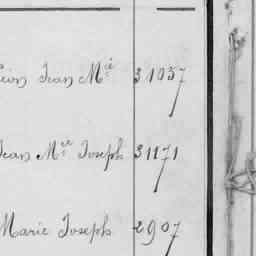 Jean Mie 31057
Jean Mie Joseph 31171
Marie Joseph 2907